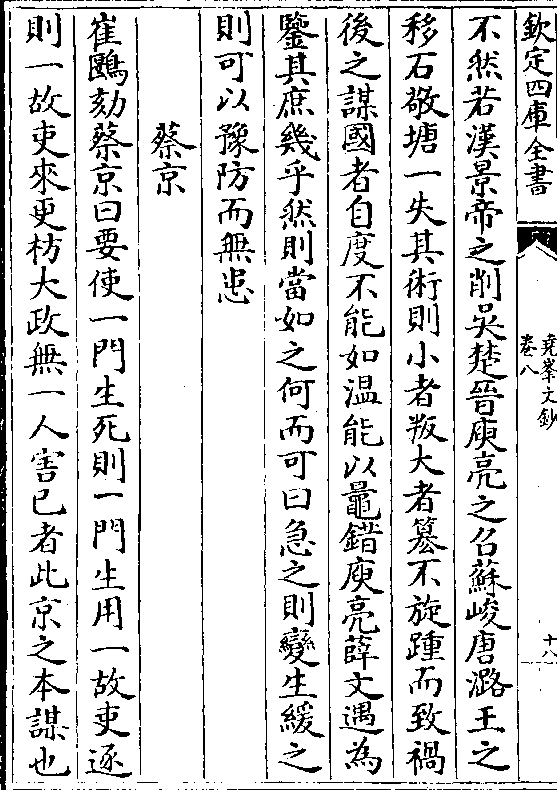 欽定四庫全書
堯峯文鈔
卷八
十八
不然若漢景帝之削吳楚晉庾亮之召蘇峻唐潞王之
移石敬塘一失其術則小者叛大者簒不旋踵而致禍
後之謀國者自度不能如溫能以鼂錯庾亮薛文遇為
鑒其庶幾乎然則當如之何而可曰急之則變生緩之
則可以豫防而無患
蔡京
崔鷗劾蔡京曰要使一門生死則一門生用一故吏逐
則一故吏來更枋大政無一人害已者此京之本謀也